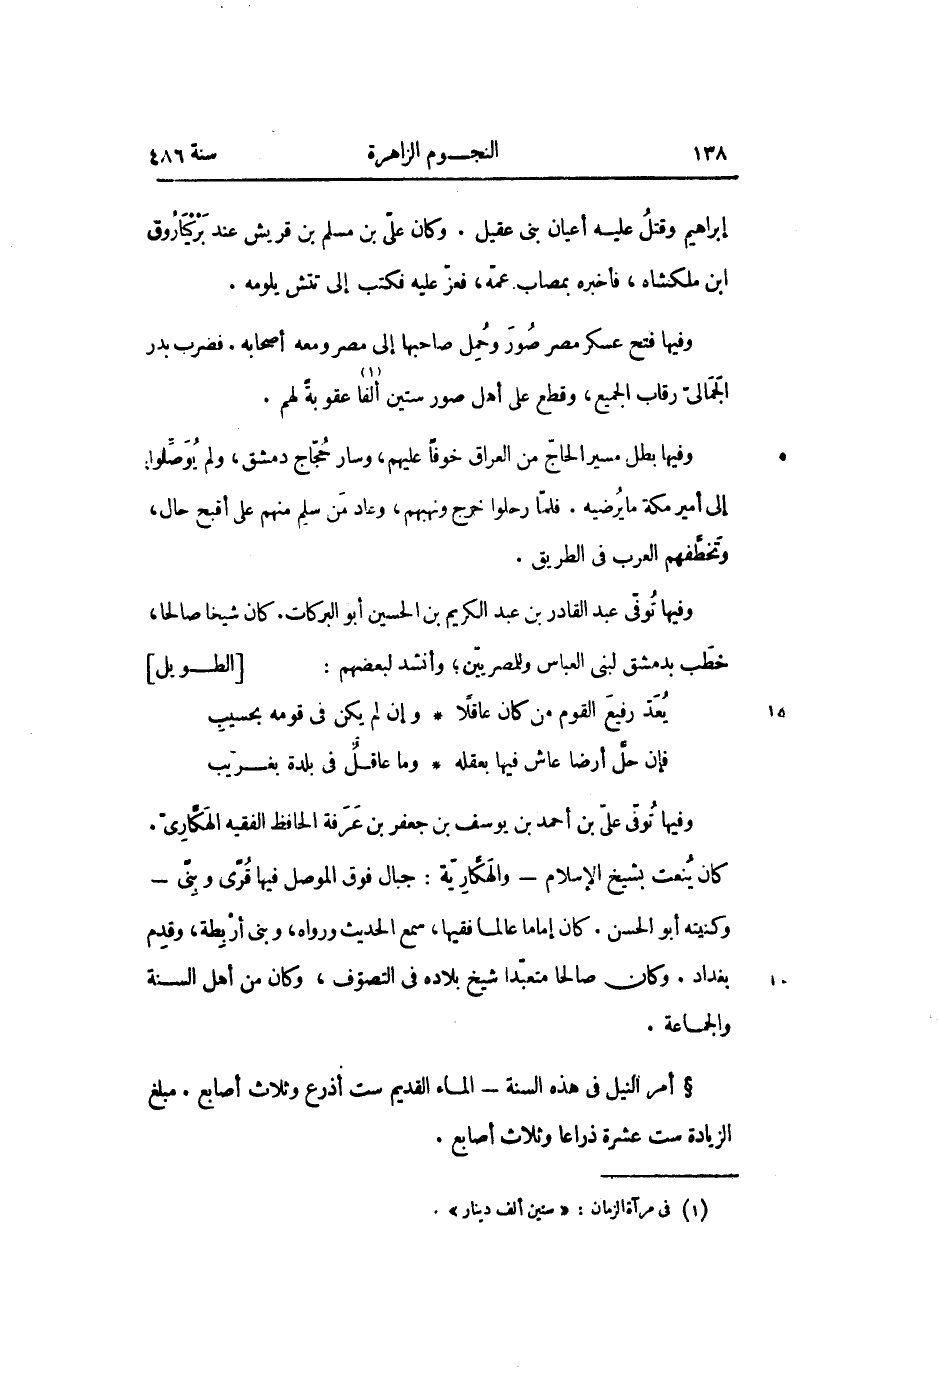 ١٣٨ النجوم الزاهرة سنة ٤٨٦
إبراهيم وقتلُ عليه أعيان بنى عقيل . وكان علىّ بن مسلم بن قريش عند بَرْكْيَارُوق
ابن ملكشاه ، فأخبره بمصاب عمّه، فعزّ عليه فكتب إلى تتش يلومه .
وفيها فتح عسكر مصر صُورَ وحُمِل صاحبها إلى مصر ومعه أصحابه . فضرب بدر
الجَمَالىّ رقاب الجميع، وقطع على أهل صور ستين ألفا(١) عقوبةً لهم .
وفيها بطل مسير الحاجّ من العراق خوفًا عليهم، وسار حُجّاج دمشق، ولم يُوَصِّلوا ٥
إلى أمير مكة ما يُرضيه . فلمّا رحلوا خرج ونهبهم، وعاد مَن سلِم منهم على أقبح حال،
وتَخطَّفهم العرب فى الطريق .
وفيها تُوفّى عبد القادر بن عبد الكريم بن الحسين أبو البركات. كان شيخا صالحا،
خطَب بدمشق لبنى العباس وللمصريّين؛ وأنشد لبعضهم : [الطويل]
يُعَدّ رفيعَ القوم من كان عاقلًا * وإن لم يكن فى قومه بحسيبِ ١٥
فإن حلَّ أرضا عاش فيها بعقله * وما عاقلٌ فى بلدة بغريب
وفيها تُوفّى علىّ بن أحمد بن يوسف بن جعفر بن عَرَفة الحافظ الفقيه الهَكَّارىّ .
كان يُنعت بشيخ الإسلام – والهَكَّاريّة : جبال فوق الموصل فيها قُرًى وبِنًى –
وكنيته أبو الحسن . كان إماما عالما فقيها، سمع الحديث ورواه، وبنى أرْبِطة، وقدِم
بغداد . وكان صالحا متعبّدا شيخ بلاده فى التصوّف ، وكان من أهل السنة ١٠
والجماعة .
§ أمر النيل فى هذه السنة – الماء القديم ست أذرع وثلاث أصابع . مبلغ
الزيادة ست عشرة ذراعا وثلاث أصابع .
(١) فى مرآة الزمان : « ستين ألف دينار » .